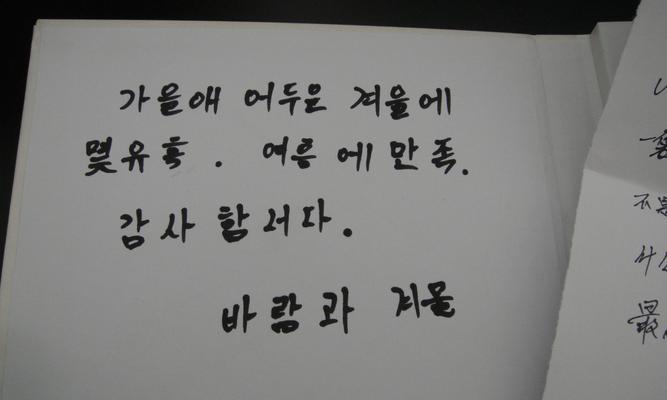 가을애 어두은 겨울에
몇유혹. 여릉에 만족.
감사함서다.
바람과 겨울
最